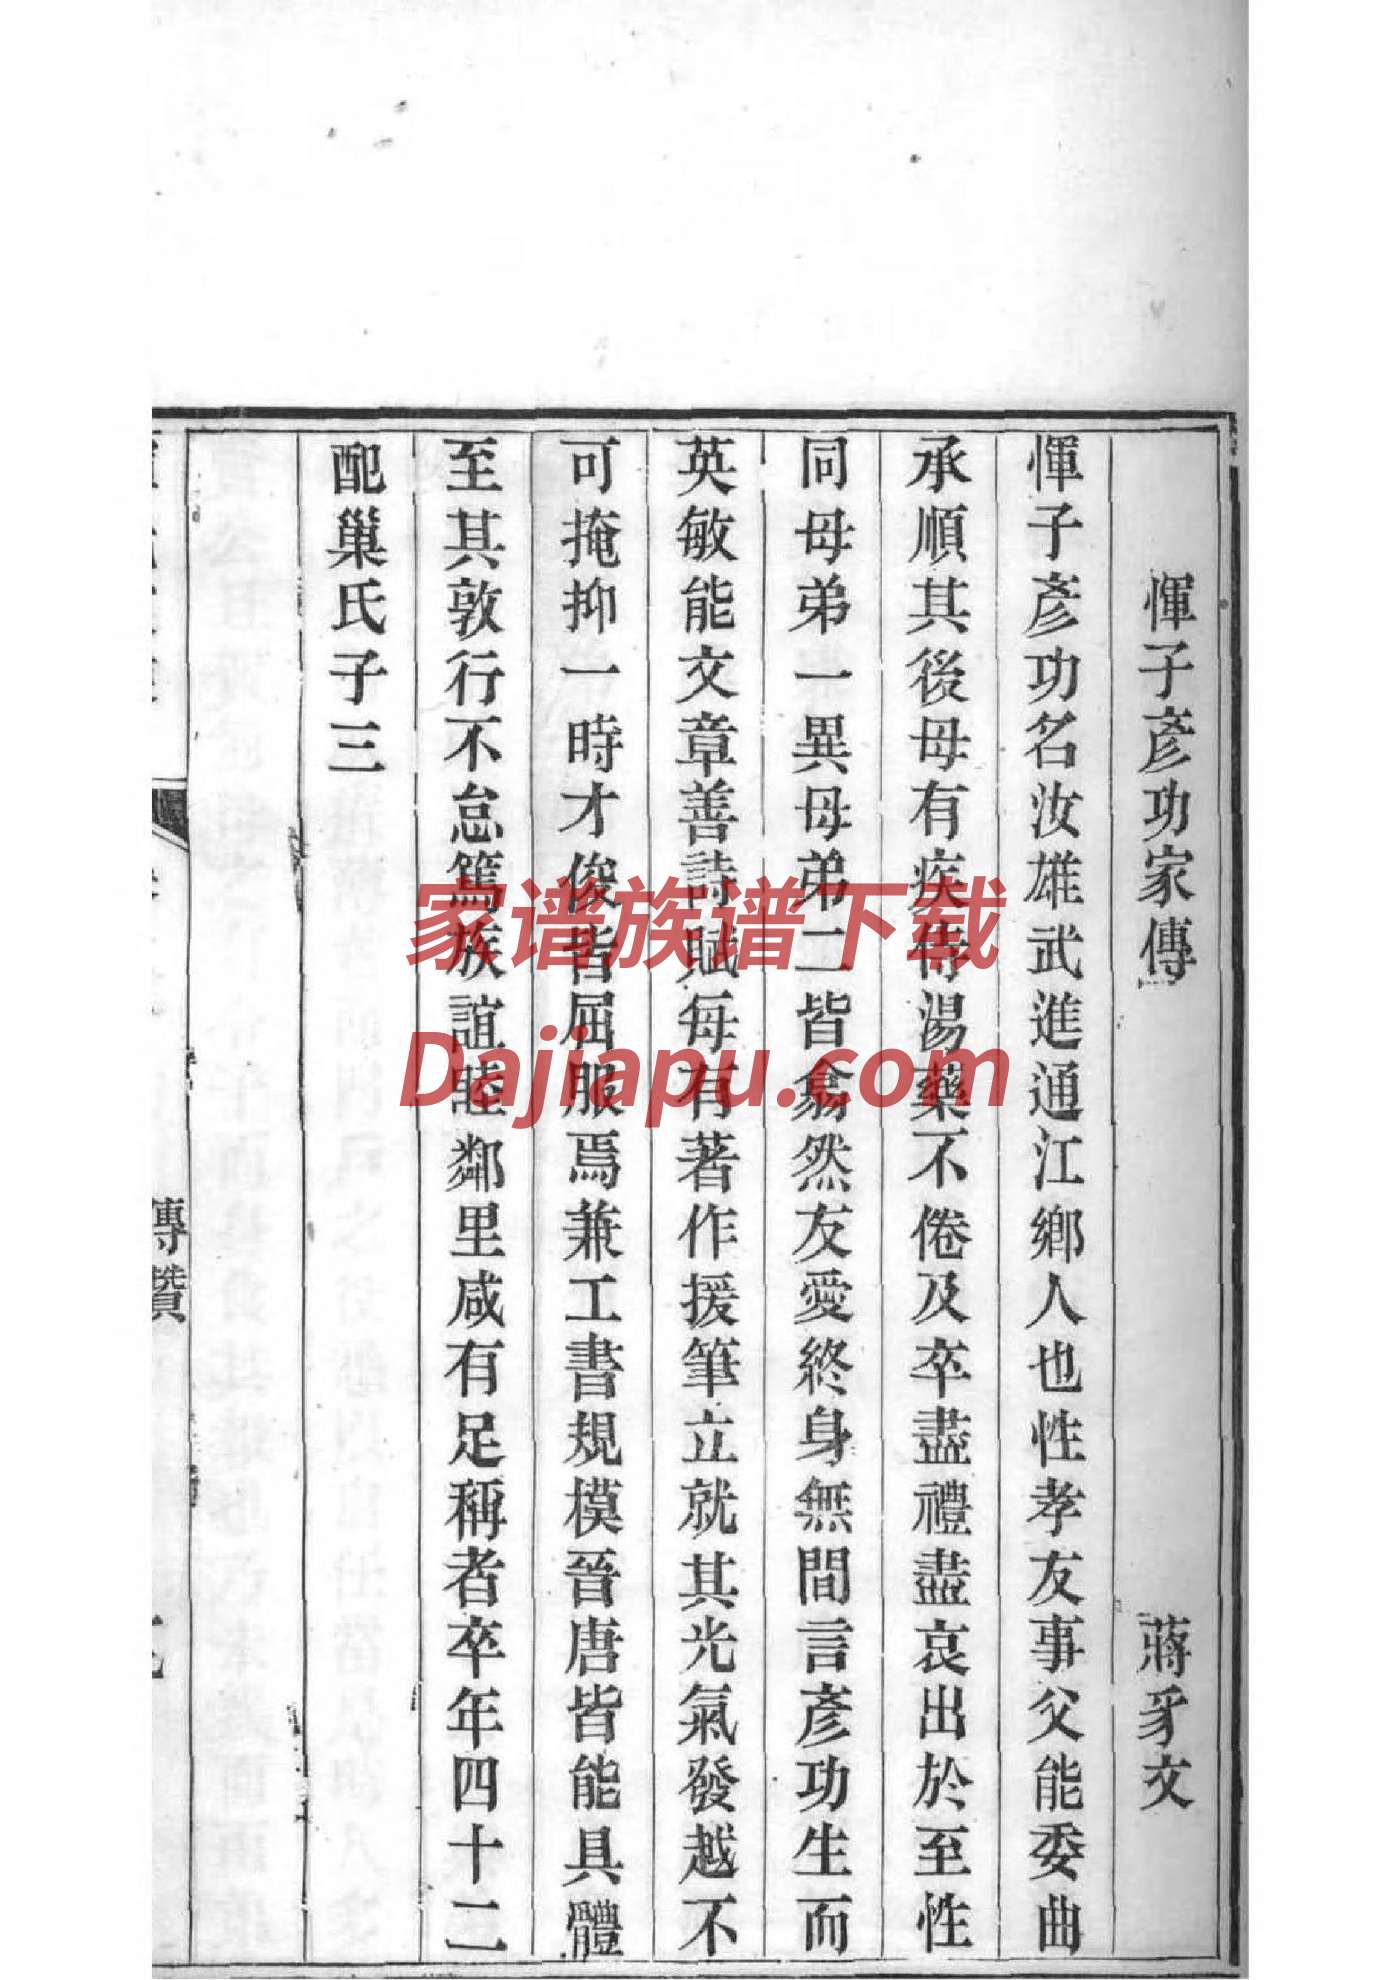 惲子彥功家傳 蔣豸文
惲子彥功名汝雄武進通江鄉人也性孝友事父能委曲
承順其後母有疾侍湯藥不倦及卒盡禮盡哀出於至性
同母弟一異母弟二皆翕然友愛終身無間言彥功生而
英敏能文章善詩賦每有著作援筆立就其光氣發越不
可掩抑一時才俊皆屈服焉兼工書規模晉唐皆能具體
至其敦行不怠篤族誼睦鄰里咸有足稱者卒年四十二
配巢氏子三
傳贊
家谱族谱下载
Dajiapu.com